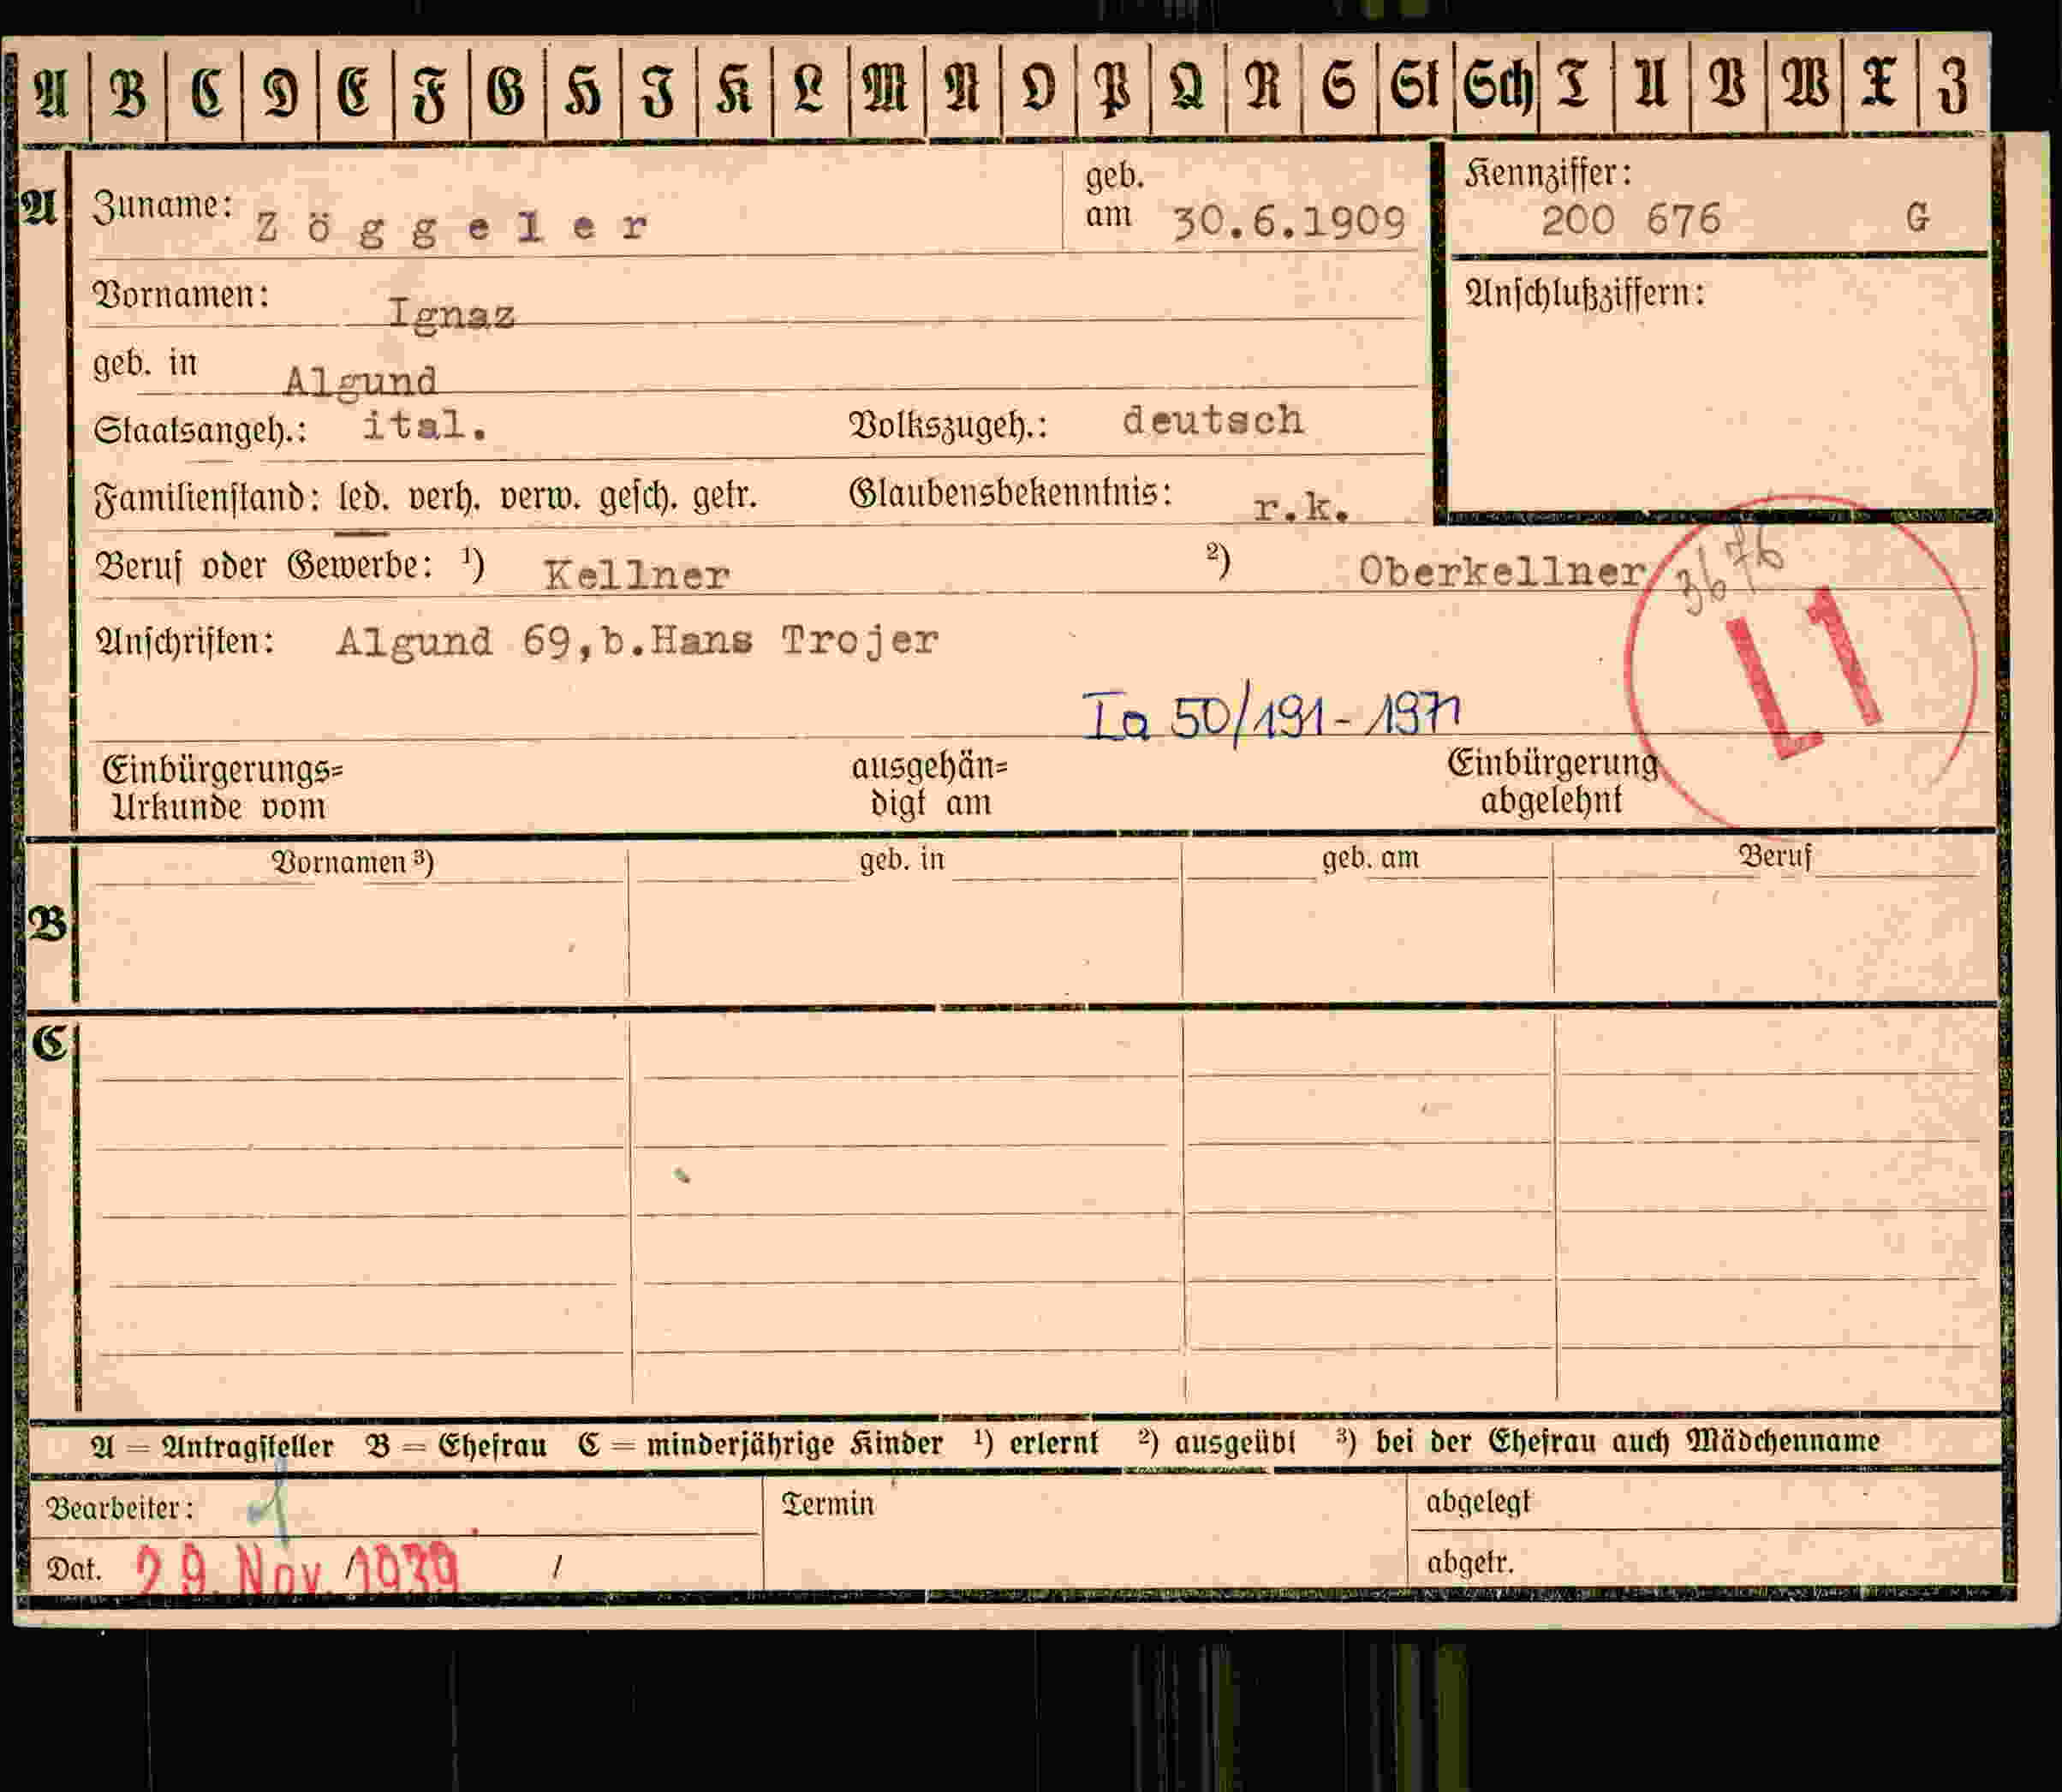 A B C D E F G H I K L M N O P Q R S St Sch T U V W X Z
A Zuname: Zöggeler geb. am 30.6.1909 Kennziffer: 200 676 G
Vornamen: Ignaz Anschlußziffern:
geb. in Algund
Staatsangeh.: ital. Volkszugeh.: deutsch
Familienstand: led. verh. verw. gesch. getr. Glaubensbekenntnis: r.k.
Beruf oder Gewerbe: 1) Kellner 2) Oberkellner 3676
Anschriften: Algund 69,b.Hans Trojer L1
Ia 50/191-1971
Einbürgerungs= ausgehän= Einbürgerung
Urkunde vom digt am abgelehnt
Vornamen 3) geb. in geb. am Beruf
B
C
A = Antragsteller B = Ehefrau C = minderjährige Kinder 1) erlernt 2) ausgeübt 3) bei der Ehefrau auch Mädchenname
Bearbeiter: Termin abgelegt
Dat. 29. Nov. 1939 / abgetr.